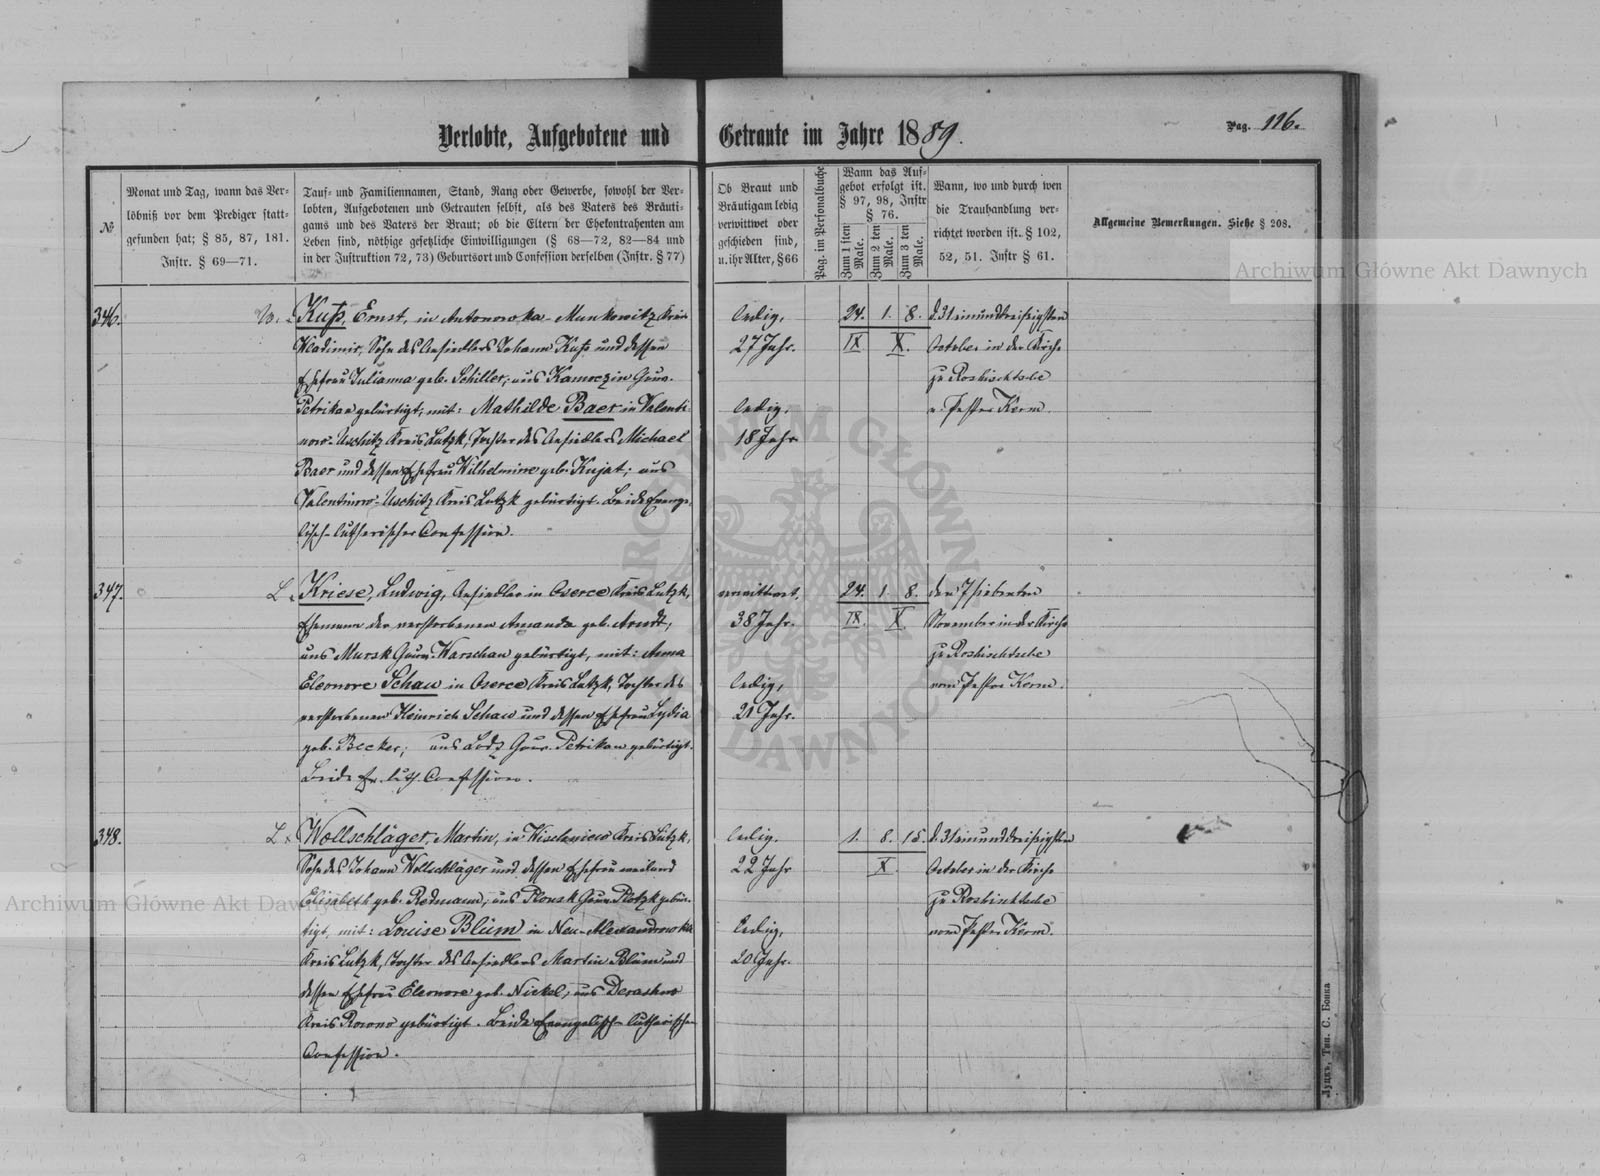 Verlobte, Aufgebotene und Getraute im Jahre 1889.
Pag. 116.
№
Monat und Tag, wann das Ver-
löbniß vor dem Prediger statt-
gefunden hat; § 85, 87, 181.
Instr. § 69—71.
Tauf- und Familiennamen, Stand, Rang oder Gewerbe, sowohl der Ver-
lobten, Aufgebotenen und Getrauten selbst, als des Vaters des Bräuti-
gams und des Vaters der Braut; ob die Eltern der Ehekontrahenten am
Leben sind, nöthige gesetzliche Einwilligungen (§ 68—72, 82—84 und
in der Justruktion 72, 73) Geburtsort und Confession derselben (Instr. § 77)
Ob Braut und
Bräutigam ledig
verwittwet oder
geschieden sind,
u. ihr Alter, § 66
Pag. im Personalbuche
Wann das Auf-
gebot erfolgt ist.
§ 97, 98, Instr
§ 76.
Zum 1 sten Male.
Zum 2 ten Male.
Zum 3 ten Male.
Wann, wo und durch wen
die Trauhandlung ver-
richtet worden ist. § 102,
52, 51. Instr § 61.
Allgemeine Bemerkungen. Siehe § 208.
346.
W.
Kuß, Ernst, in Antonowka-Munkowitz Kreis
Wladimir, Sohn des Ansiedlers Johann Kuß und dessen
Ehefrau Julianna geb. Schiller; aus Kamoczin Gouv.
Petrikau gebürtigt; mit: Mathilde Baer in Valenti-
now-Uschitz Kreis Lutzk, Tochter des Ansiedlers Michael
Baer und dessen Ehefrau Wilhelmine geb. Kujat; aus
Valentinow-Uschitz Kreis Lutzk gebürtigt. Beide Evange-
lisch-lutherischer Confession.
ledig,
27 Jahr.
ledig,
18 Jahr
24. 1. 8.
IX X.
d. 31 einunddreißigsten
October in der Kirche
zu Roshischtsche
v. Pastor Kerm.
347.
L.
Kriese, Ludwig, Ansiedler in Oserce Kreis Lutzk,
Ehemann der verstorbenen Amanda geb. Arndt;
aus Mursk Gouv. Warschau gebürtigt, mit: Anna
Eleonore Schau in Oserce Kreis Lutzk, Tochter des
verstorbenen Heinrich Schau und dessen Ehefrau Lydia
geb. Becker; aus Lodz Gouv. Petrikau gebürtigt.
Beide Ev. luth. Confession.
verwittwet,
38 Jahr.
ledig,
21 Jahr.
24. 1. 8.
IX. X.
den 7 siebenten
November in der Kirche
zu Roshischtsche
vom Pastor Kerm.
348.
L.
Wollschläger, Martin, in Wischniew Kreis Lutzk,
Sohn des Johann Wollschläger und dessen Ehefrau weiland
Elisabeth geb. Redmann; aus Plonsk Gouv. Plotzk gebür-
tigt, mit: Louise Blüm in Neu-Alexandrowka
Kreis Lutzk, Tochter des Ansiedlers Martin Blüm und
dessen Ehefrau Eleonore geb. Nickel; aus Deraschno
Kreis Rowno gebürtigt. Beide Evangelisch-lutherischer
Confession.
ledig.
22 Jahr
ledig,
20 Jahr.
1. 8. 15.
X.
d. 31 einunddreißigsten
October in der Kirche
zu Roshischtsche
vom Pastor Kerm.
Луцкъ, Тип. С. Бонка
Archiwum Główne Akt Dawnych
Archiwum Główne Akt Dawnych
ARCHIWUM GŁÓWNE AKT DAWNYCH